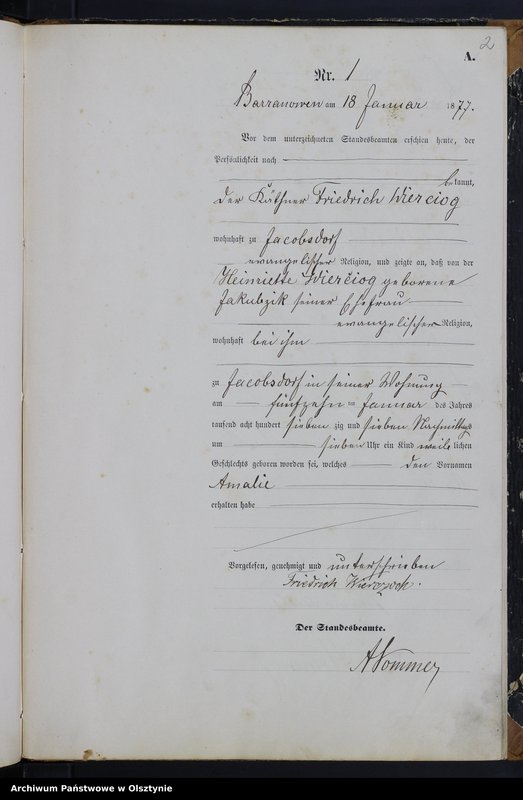 2
A.
Nr. 1
Barranowen am 18 Januar 1877.
Vor dem unterzeichneten Standesbeamten erschien heute, der
Persönlichkeit nach
bekannt,
der Käthner Friedrich Wierciog
wohnhaft zu Jacobsdorf
evangelischer Religion, und zeigte an, daß von der
Heinriette Wierciog geborene
Jakubzik seiner Ehefrau
evangelischer Religion,
wohnhaft bei ihm
zu Jacobsdorf in seiner Wohnung
am fünfzehn ten Januar des Jahres
tausend acht hundert sieben zig und sieben Nachmittags
um sieben Uhr ein Kind weib lichen
Geschlechts geboren worden sei, welches den Vornamen
Amalie
erhalten habe
Vorgelesen, genehmigt und unterschrieben
Friedrich
Der Standesbeamte.
Archiwum Państwowe w Olsztynie